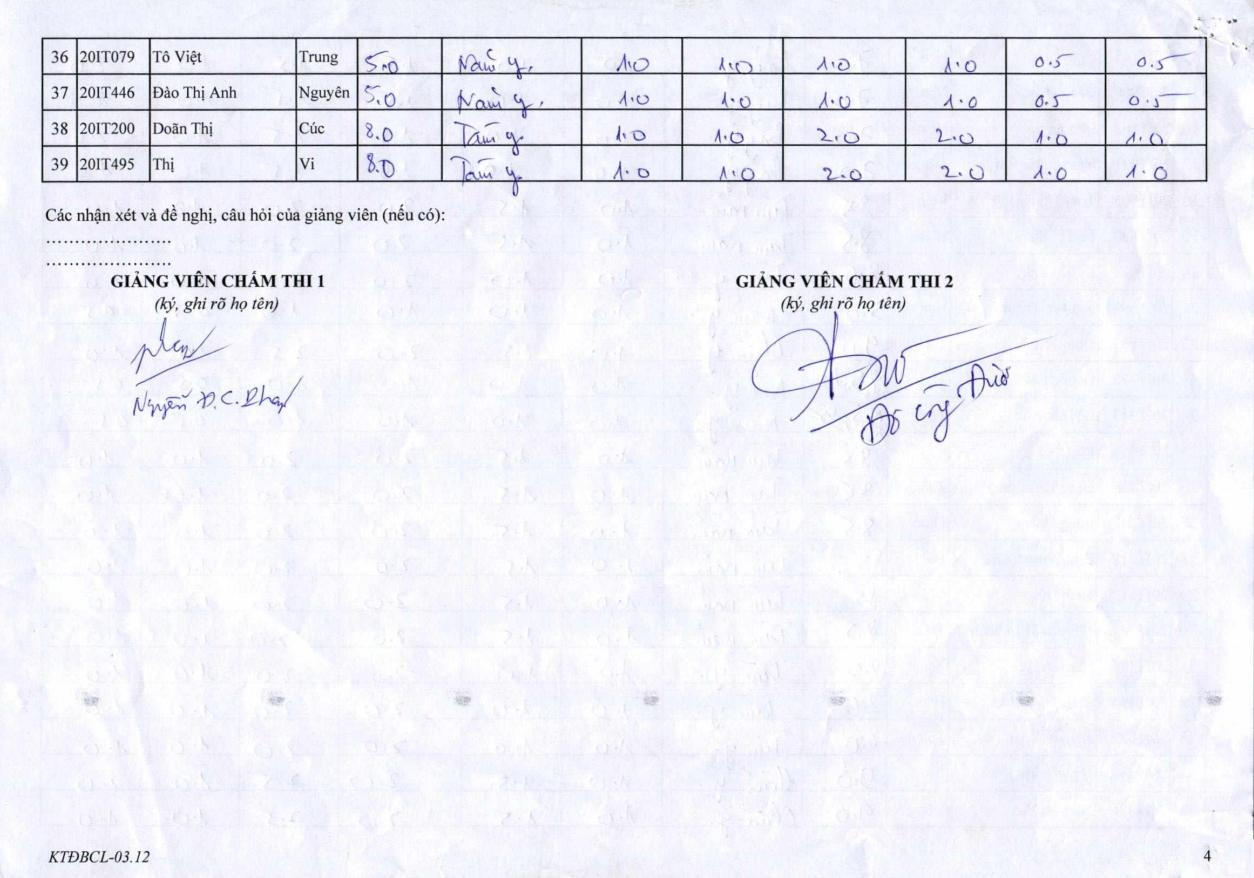 36 20IT079 Tô Việt Trung 5.0 Năm y. 1.0 1.0 1.0 1.0 0.5 0.5
37 20IT446 Đào Thị Anh Nguyên 5.0 Năm y. 1.0 1.0 1.0 1.0 0.5 0.5
38 20IT200 Doãn Thị Cúc 8.0 Tám y. 1.0 1.0 2.0 2.0 1.0 1.0
39 20IT495 Thị Vi 8.0 Tám y. 1.0 1.0 2.0 2.0 1.0 1.0
Các nhận xét và đề nghị, câu hỏi của giảng viên (nếu có):
......................
......................
GIẢNG VIÊN CHẤM THI 1 GIẢNG VIÊN CHẤM THI 2
(ký, ghi rõ họ tên) (ký, ghi rõ họ tên)
Nguyễn Đ.C.
KTĐBCL-03.12 4